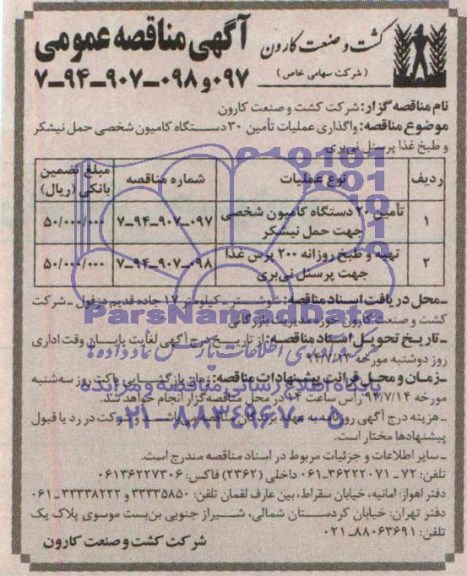 کشت و صنعت کارون
(شرکت سهامی خاص)
آگهی مناقصه عمومی
۰۹۷ و ۰۹۸-۹۰۷-۹۴-۷
نام مناقصه گزار: شرکت کشت و صنعت کارون
موضوع مناقصه: واگذاری عملیات تأمین ۳۰ دستگاه کامیون شخصی حمل نیشکر
و طبخ غذا پرسنل نی‌بری
ردیف نوع عملیات شماره مناقصه مبلغ تضمین بانکی (ریال)
۱ تأمین ۲۰ دستگاه کامیون شخصی جهت حمل نیشکر ۰۹۷-۹۰۷-۹۴-۷ ۵۰/۰۰۰/۰۰۰
۲ تهیه و طبخ روزانه ۲۰۰ پرس غذا جهت پرسنل نی‌بری ۰۹۸-۹۰۷-۹۴-۷ ۵۰/۰۰۰/۰۰۰
-محل دریافت اسناد مناقصه: شوشتر-کیلومتر ۱۷ جاده قدیم دزفول-شرکت
کشت و صنعت کارون حوزه مدیریت بازرگانی
-تاریخ تحویل اسناد مناقصه: از تاریخ درج آگهی لغایت پایان وقت اداری
روز دوشنبه مورخه
-زمان و محل قرائت پیشنهادات مناقصه: زمان بازگشایی پاکت روز سه‌شنبه
مورخه ۹۴/۷/۱۴ رأس ساعت ۱۴ در محل مناقصه‌گزار انجام خواهد شد.
-هزینه درج آگهی روزنامه به عهده برندگان و شرکت در رد یا قبول
پیشنهادها مختار است.
-سایر اطلاعات و جزئیات مربوط در اسناد مناقصه مندرج است.
تلفن: ۷۲-۳۶۲۲۲۰۷۱-۰۶۱ داخلی (۲۳۶۲) فاکس: ۰۶۱۳۶۲۲۷۳۰۶
دفتر اهواز: امانیه، خیابان سقراط، بین عارف لقمان تلفن: ۳۳۳۳۵۸۵۰ و ۳۳۳۳۸۲۲۲-۰۶۱
دفتر تهران: خیابان کردستان شمالی، شیراز جنوبی بن‌بست موسوی پلاک یک
تلفن: ۸۸۰۶۳۶۹۱-۰۲۱
شرکت کشت و صنعت کارون
ParsNamadData
پایگاه اطلاع رسانی مناقصه و مزایده
۰۲۱-۸۸۳۴۹۶۷۰-۵